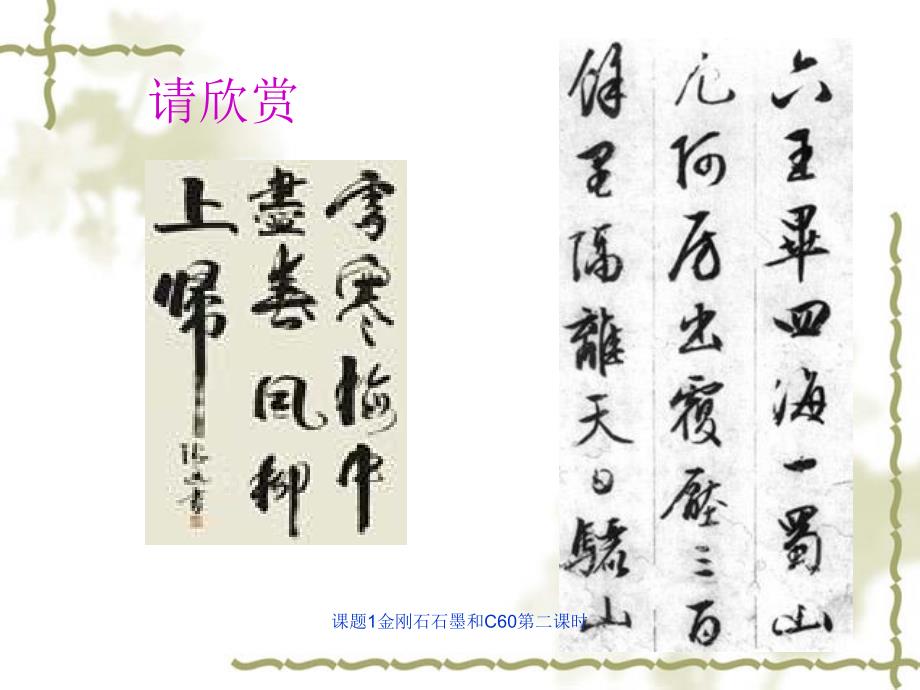 请欣赏
雪寒梅中
盡春風柳
上帰
六王畢四海一蜀山
兀阿房出覆壓三百
餘里隔離天日驪山
课题1金刚石石墨和C60第二课时